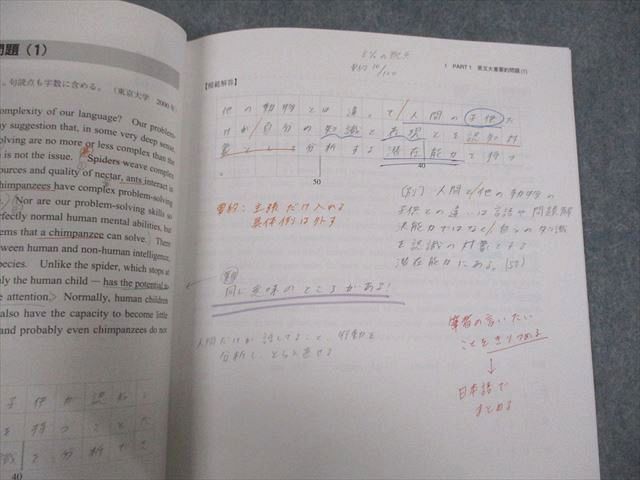 問題（1）
。句読点も字数に含める。（東京大学 2000年
omplexity of our language? Our problem-
y suggestion that, in some very deep sense,
olving are no more or less complex than the
is not the issue. Spiders weave complex
ources and quality of nectar, ants interact in
himpanzees have complex problem-solving
Nor are our problem-solving skills so
erfectly normal human mental abilities, but
ems that a chimpanzee can solve.) There
tween human and non-human intelligence,
pecies. Unlike the spider, which stops at
ly the human child — has the potential to
e attention.〉 Normally, human children
also have the capacity to become little
and probably even chimpanzees do not
子供が認知し
を持つことだ
識を分析でき
40
1 PART 1 英文大意要約問題(1)
【模範解答】
他の動物とは違って/人間の子供だ
けが/自分の知識と表現とを認知対
象として分析する潜在能力を持つ
。
40
50
要約：主張だけ入れる
具体例は外す
(別) 人間と他の動物の
子供との違いは言語や問題解
決能力ではなく/自らの
を認識の対象とする
潜在能力にある。
同じ意味のところがある!
人間だけが 話してること、行動を
分析し、
筆者の言いたい
ことを
↓
日本語で
まとめる